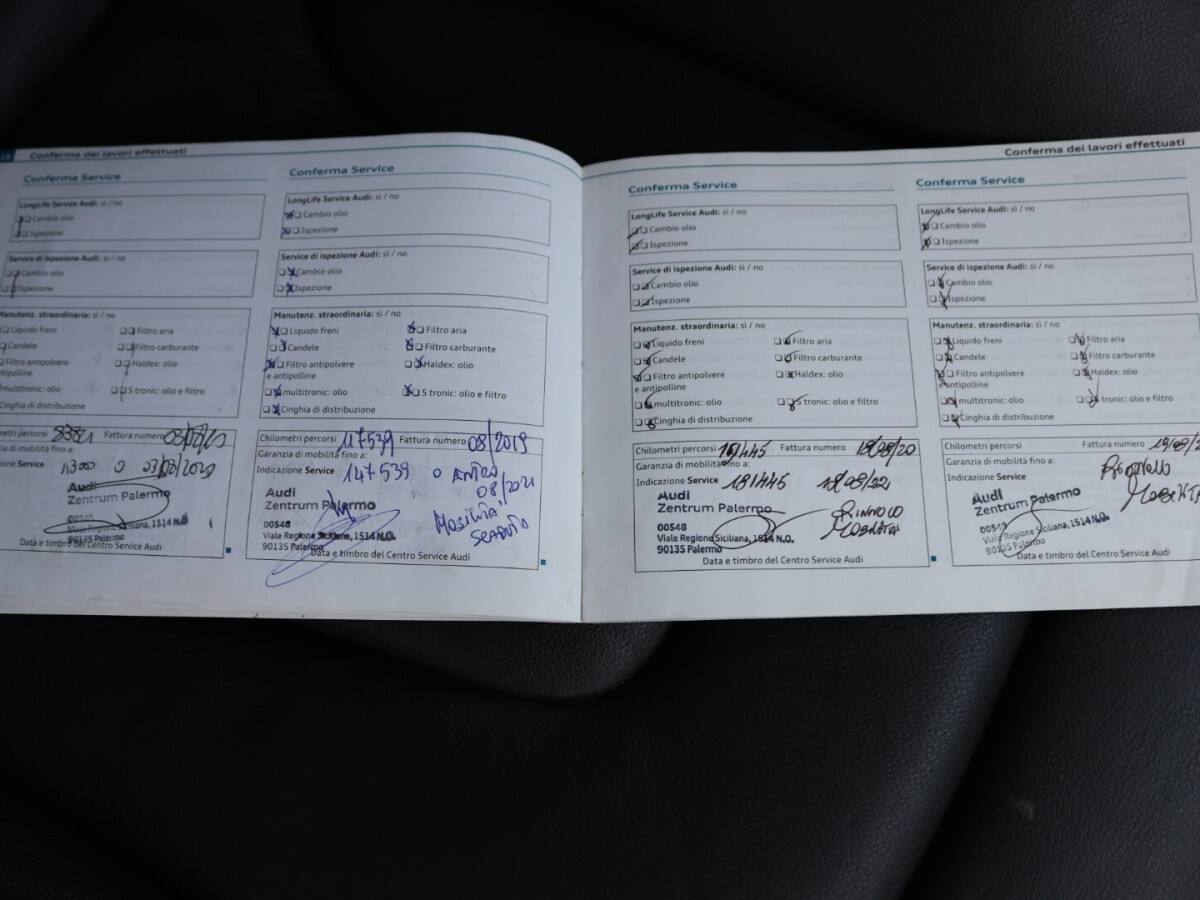 Conferma dei lavori effettuati
Conferma Service
LongLife Service Audi: sì / no
Cambio olio
Ispezione
Service di ispezione Audi: sì / no
Cambio olio
Ispezione
Manutenz. straordinaria: sì / no
Liquido freni
Filtro aria
Candele
Filtro carburante
Filtro antipolvere
Haldex: olio
multitronic: olio
S tronic: olio e filtro
Cinghia di distribuzione
Fattura numero
Service
Audi
Zentrum Palermo
90135 Palermo
Data e timbro del Centro Service Audi
Conferma Service
LongLife Service Audi: sì / no
Cambio olio
Ispezione
Service di ispezione Audi: sì / no
Cambio olio
Ispezione
Manutenz. straordinaria: sì / no
Liquido freni
Filtro aria
Candele
Filtro carburante
Filtro antipolvere
e antipolline
Haldex: olio
multitronic: olio
S tronic: olio e filtro
Cinghia di distribuzione
Chilometri percorsi 117539 Fattura numero 08/2019
Garanzia di mobilità fino a:
Indicazione Service 147539 o ENTRO
08/2021
MOBILITA'
SCADUTO
Audi
Zentrum Palermo
00548
Viale Regione Siciliana, 1514 N.O.
90135 Palermo
Data e timbro del Centro Service Audi
Conferma dei lavori effettuati
Conferma Service
LongLife Service Audi: sì / no
Cambio olio
Ispezione
Service di ispezione Audi: sì / no
Cambio olio
Ispezione
Manutenz. straordinaria: sì / no
Liquido freni
Filtro aria
Candele
Filtro carburante
Filtro antipolvere
e antipolline
Haldex: olio
multitronic: olio
S tronic: olio e filtro
Cinghia di distribuzione
Chilometri percorsi 151445 Fattura numero
Garanzia di mobilità fino a:
Indicazione Service 181445
RINNOVO
Audi
Zentrum Palermo
00548
Viale Regione Siciliana, 1514 N.O.
90135 Palermo
Data e timbro del Centro Service Audi
Conferma Service
LongLife Service Audi: sì / no
Cambio olio
Ispezione
Service di ispezione Audi: sì / no
Cambio olio
Ispezione
Manutenz. straordinaria: sì / no
Liquido freni
Filtro aria
Candele
Filtro carburante
Filtro antipolvere
e antipolline
Haldex: olio
multitronic: olio
tronic: olio e filtro
Cinghia di distribuzione
Chilometri percorsi
Fattura numero
Garanzia di mobilità fino a:
Indicazione Service
Audi
Zentrum Palermo
Viale Regione Siciliana, 1514 N.O.
90135 Palermo
Data e timbro del Centro Service Audi